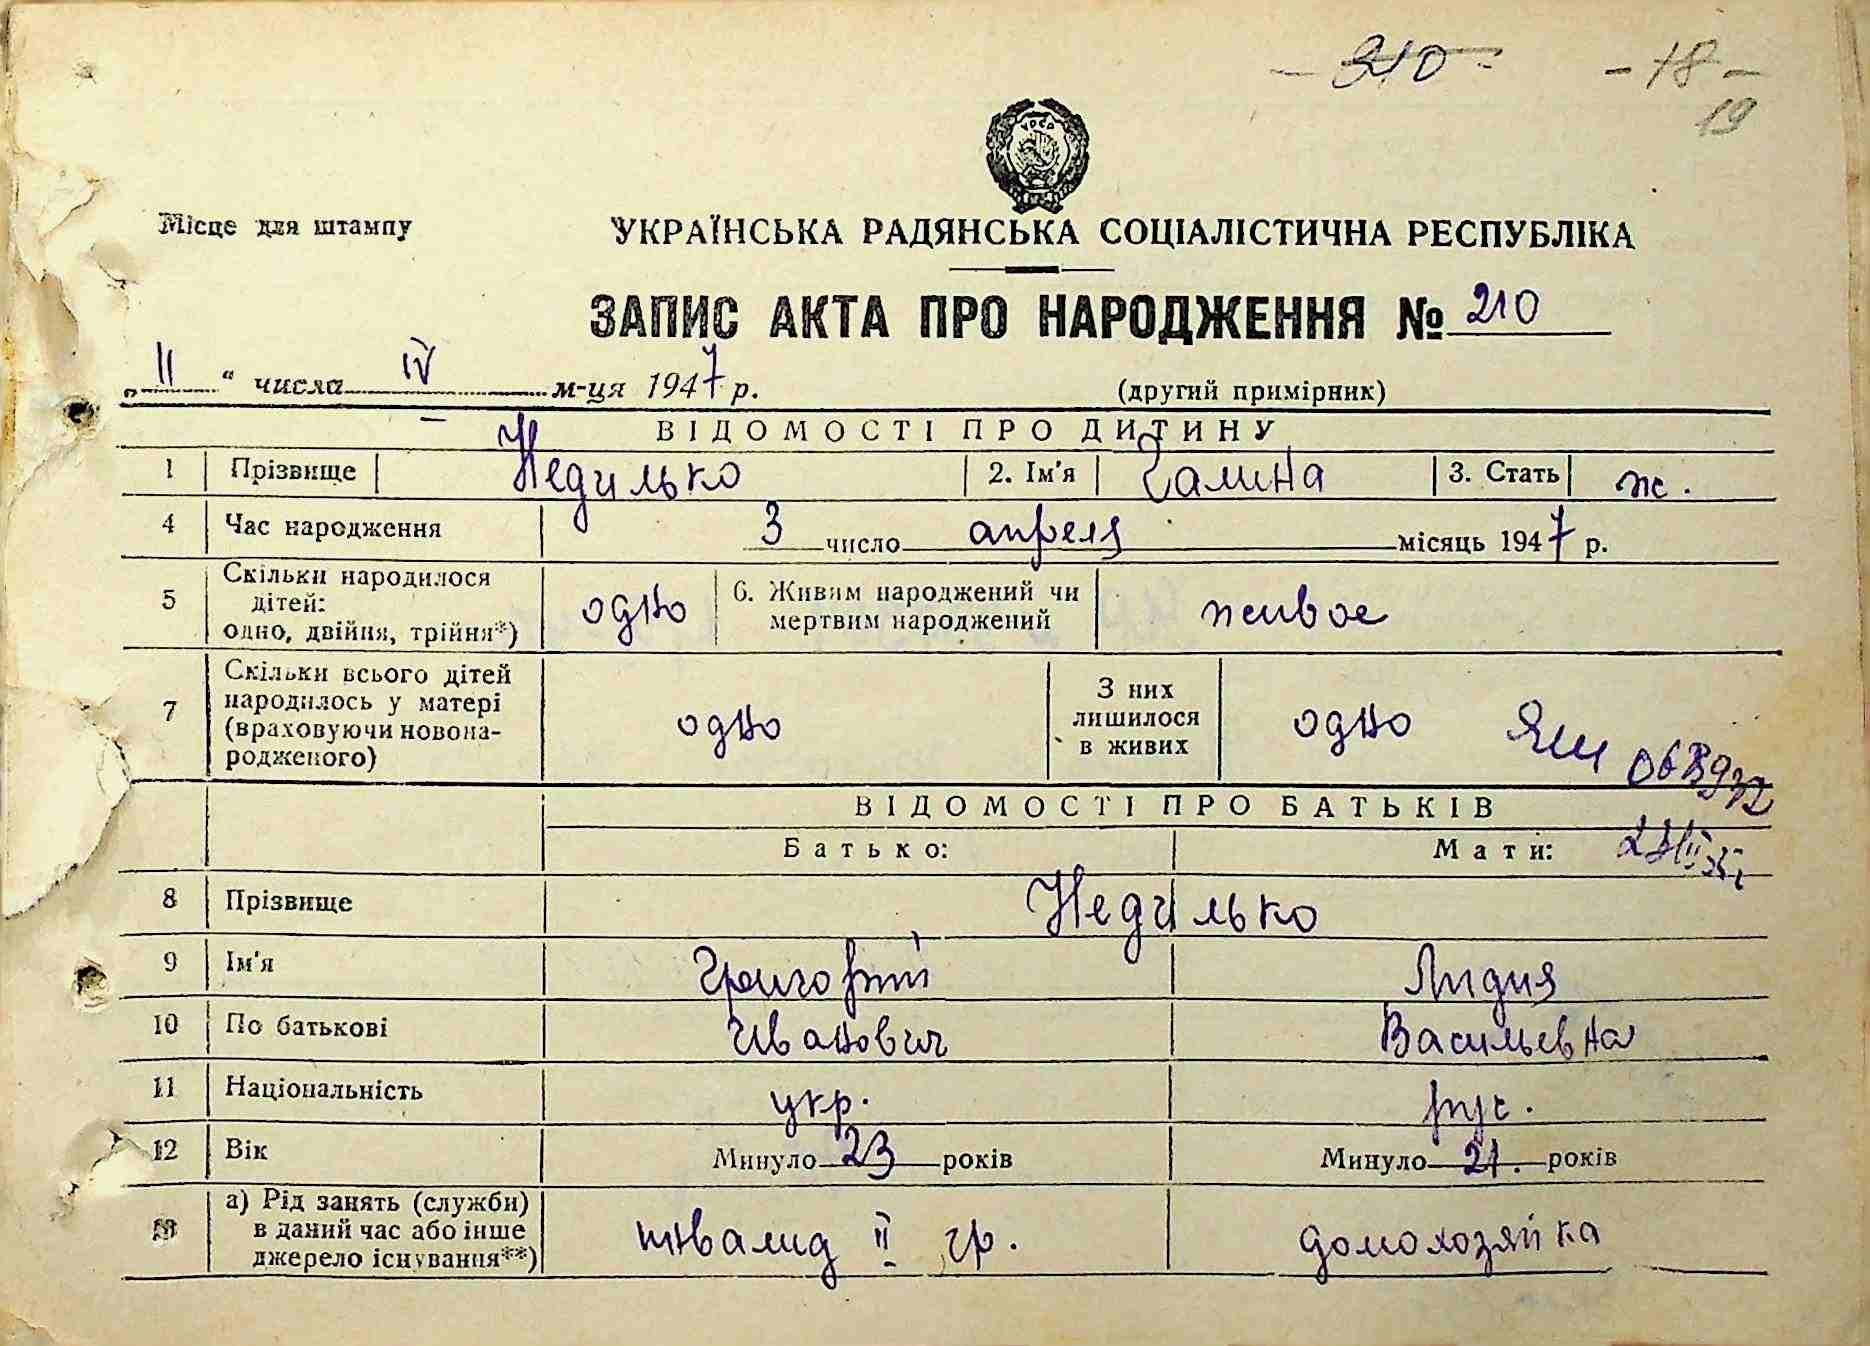 - 210 - - 18 -
19
УРСР
Місце для штампу УКРАЇНСЬКА РАДЯНСЬКА СОЦІАЛІСТИЧНА РЕСПУБЛІКА
ЗАПИС АКТА ПРО НАРОДЖЕННЯ № 210
„ 11 “ числа IV м-ця 1947 р. (другий примірник)
ВІДОМОСТІ ПРО ДИТИНУ
1 Прізвище Недилько 2. Ім'я Галина 3. Стать ж.
4 Час народження 3 число апреля місяць 1947 р.
5 Скільки народилося
дітей:
одно, двійня, трійня*) одно 6. Живим народжений чи
мертвим народжений живое
7 Скільки всього дітей
народилось у матері
(враховуючи новона-
родженого) одно З них
лишилося
в живих одно
ВІДОМОСТІ ПРО БАТЬКІВ
Батько: Мати:
8 Прізвище Недилько
9 Ім'я Григорий Лидия
10 По батькові Иванович Васильевна
11 Національність укр. рус.
12 Вік Минуло 23 років Минуло 21. років
13 а) Рід занять (служби)
в даний час або інше
джерело існування**) инвалид II гр. домохозяйка